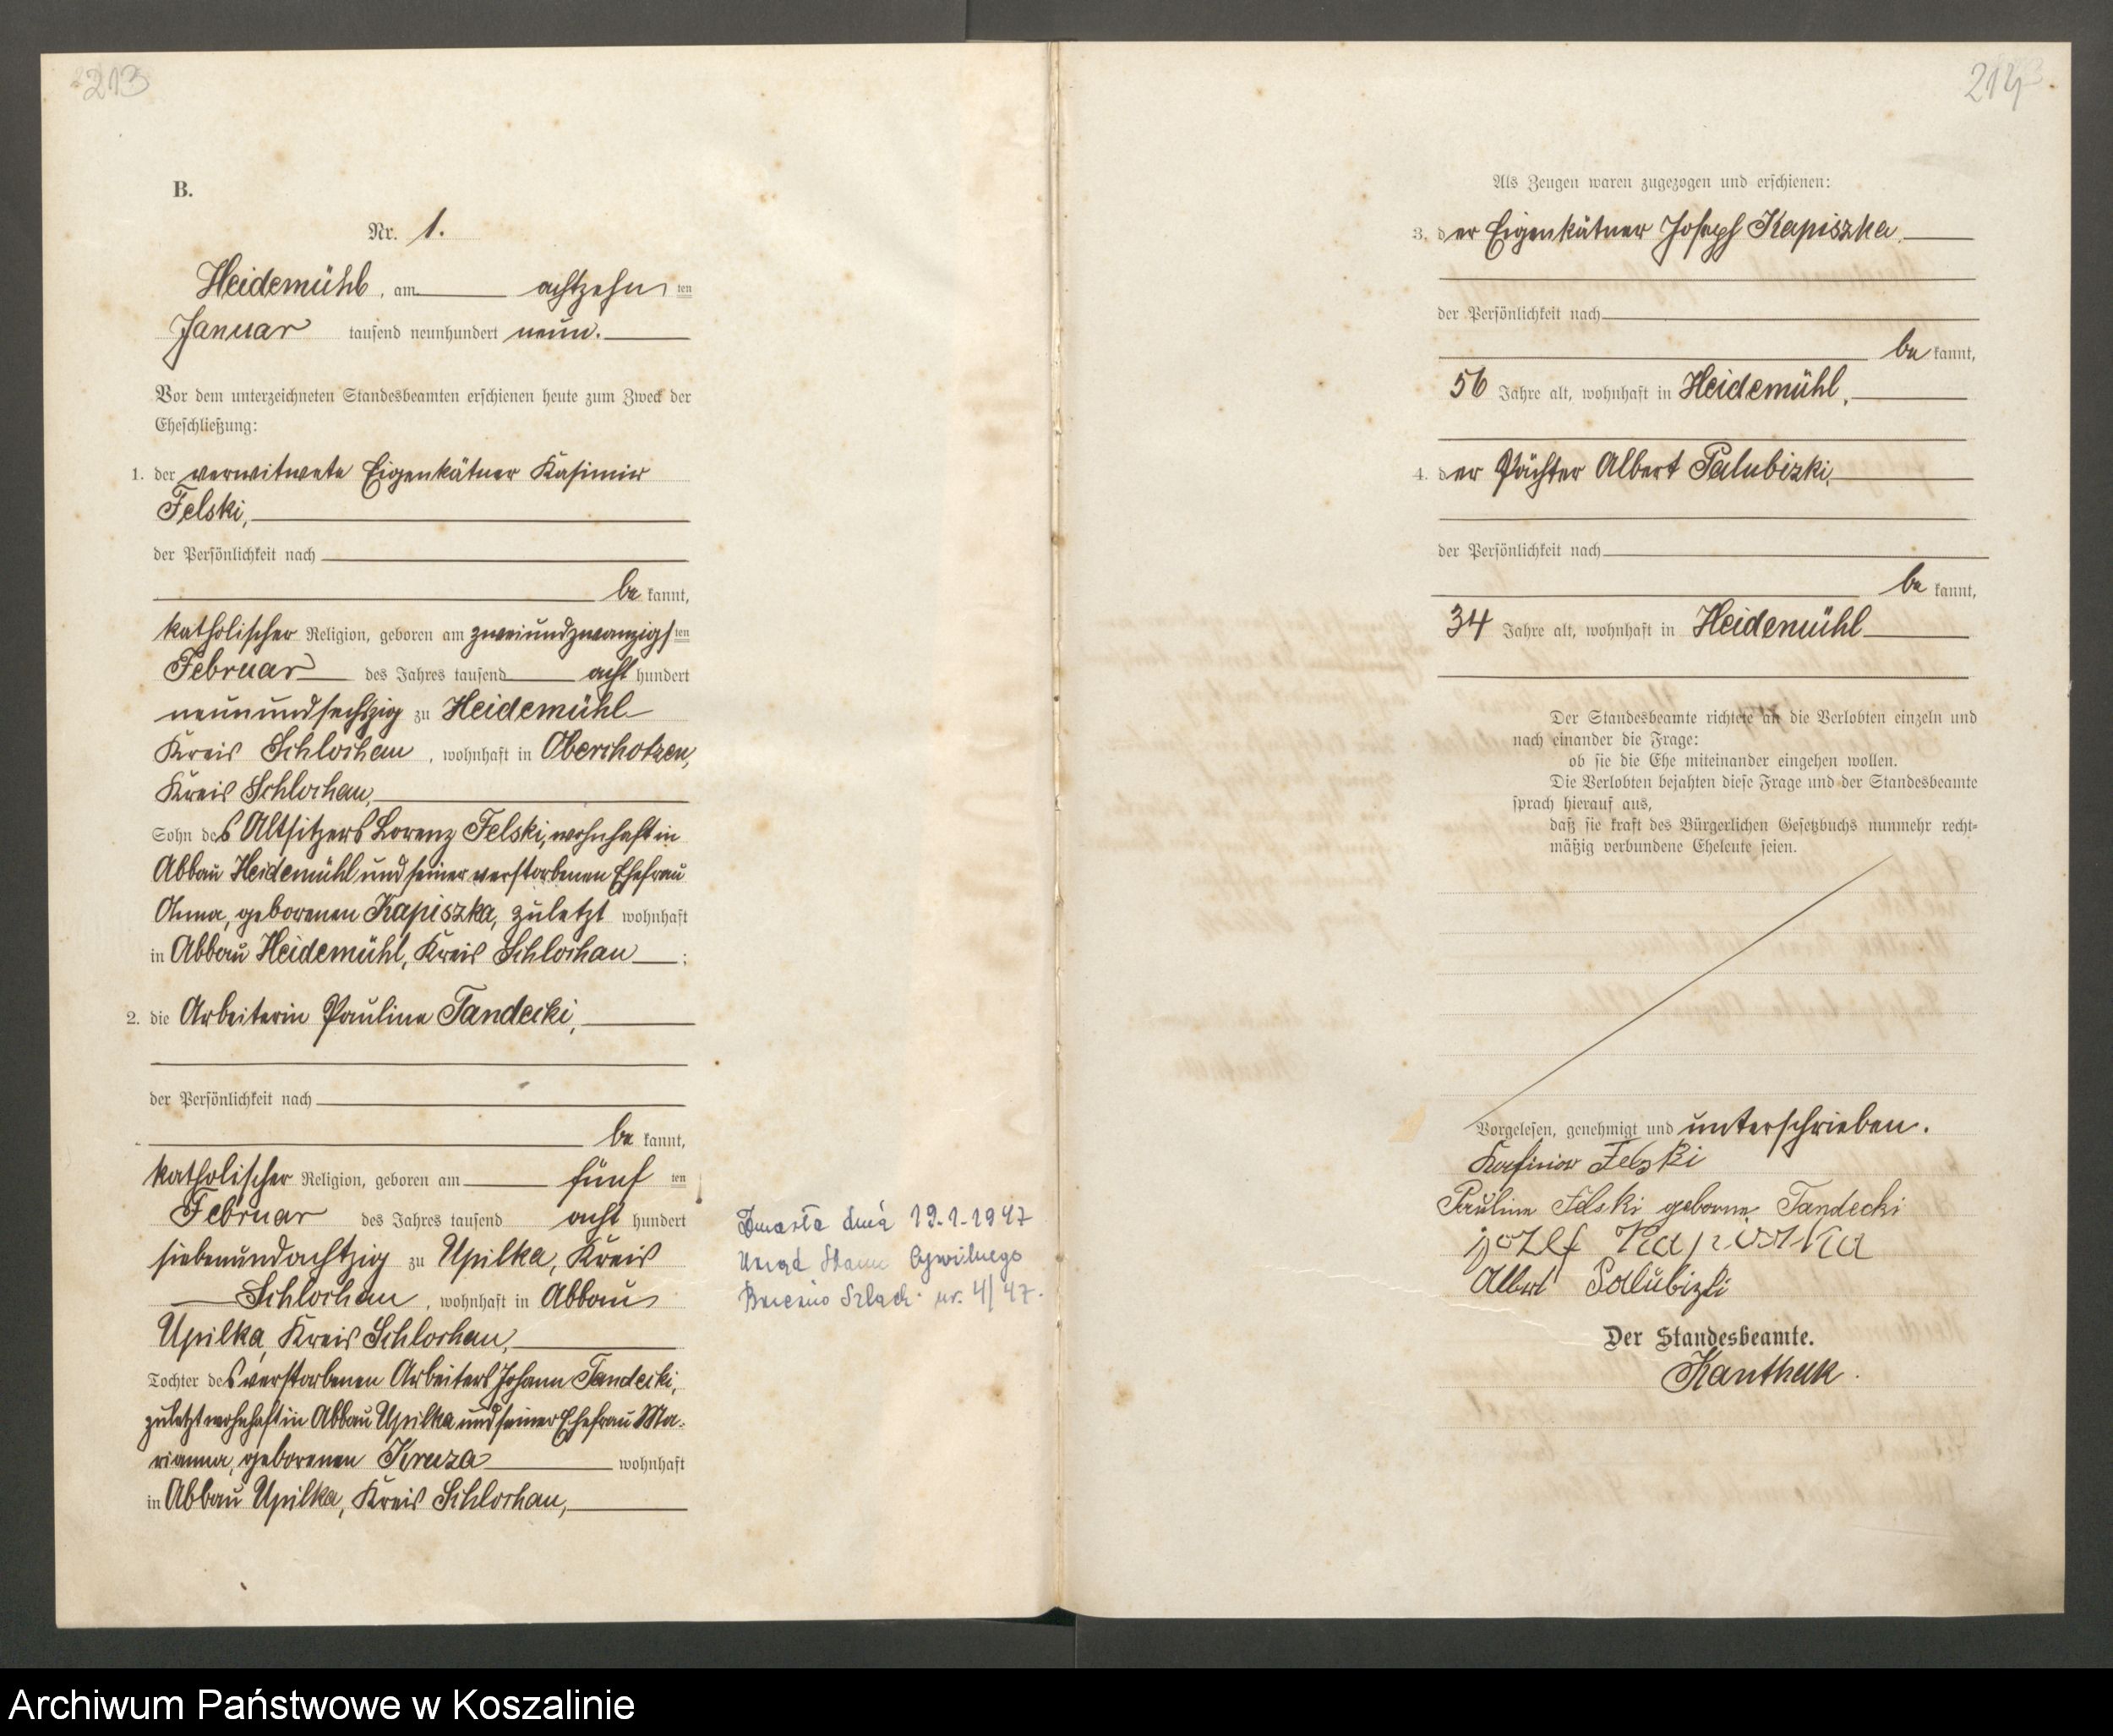 213
B.
Nr. 1.
Heidemühl, am achtzehn ten
Januar tausend neunhundert neun.
Vor dem unterzeichneten Standesbeamten erschienen heute zum Zweck der
Eheschließung:
1. der verwitwete Eigenkätner Kasimir
Felski,
der Persönlichkeit nach
be kannt,
katholischer Religion, geboren am zweiundzwanzigs ten
Februar des Jahres tausend acht hundert
neunundsechszig zu Heidemühl
Kreis Schlochau, wohnhaft in Oberchotzen,
Kreis Schlochau,
Sohn des Altsitzers Lorenz Felski, wohnhaft in
Abbau Heidemühl und seiner verstorbenen Ehefrau
Anna, geborenen Kapiszka, zuletzt wohnhaft
in Abbau Heidemühl, Kreis Schlochau ;
2. die Arbeiterin Pauline Tandecki,
der Persönlichkeit nach
be kannt,
katholischer Religion, geboren am fünf ten
Februar des Jahres tausend acht hundert
siebenundachtzig zu Upilka, Kreis
Schlochau, wohnhaft in Abbau
Upilka, Kreis Schlochau,
Tochter des verstorbenen Arbeiters Johann Tandecki,
zuletzt wohnhaft in Abbau Upilka und seiner Ehefrau Ma-
rianna, geborenen Kruza wohnhaft
in Abbau Upilka, Kreis Schlochau,
Zmarła dnia 19.1.1947
Urząd Stanu Cywilnego
Brzeźno Szlach. nr. 4/47.
214
Als Zeugen waren zugezogen und erschienen:
3. der Eigenkätner Joseph Kapiszka,
der Persönlichkeit nach
be kannt,
56 Jahre alt, wohnhaft in Heidemühl,
4. der Pächter Albert Palubizki,
der Persönlichkeit nach
be kannt,
34 Jahre alt, wohnhaft in Heidemühl
Der Standesbeamte richtete an die Verlobten einzeln und
nach einander die Frage:
ob sie die Ehe miteinander eingehen wollen.
Die Verlobten bejahten diese Frage und der Standesbeamte
sprach hierauf aus,
daß sie kraft des Bürgerlichen Gesetzbuchs nunmehr recht-
mäßig verbundene Eheleute seien.
Vorgelesen, genehmigt und unterschrieben.
Kasimir Felski
Pauline Felski geborne Tandecki
jozef Kapiszka
Albert Palubizki
Der Standesbeamte.
Kanthak.
Archiwum Państwowe w Koszalinie